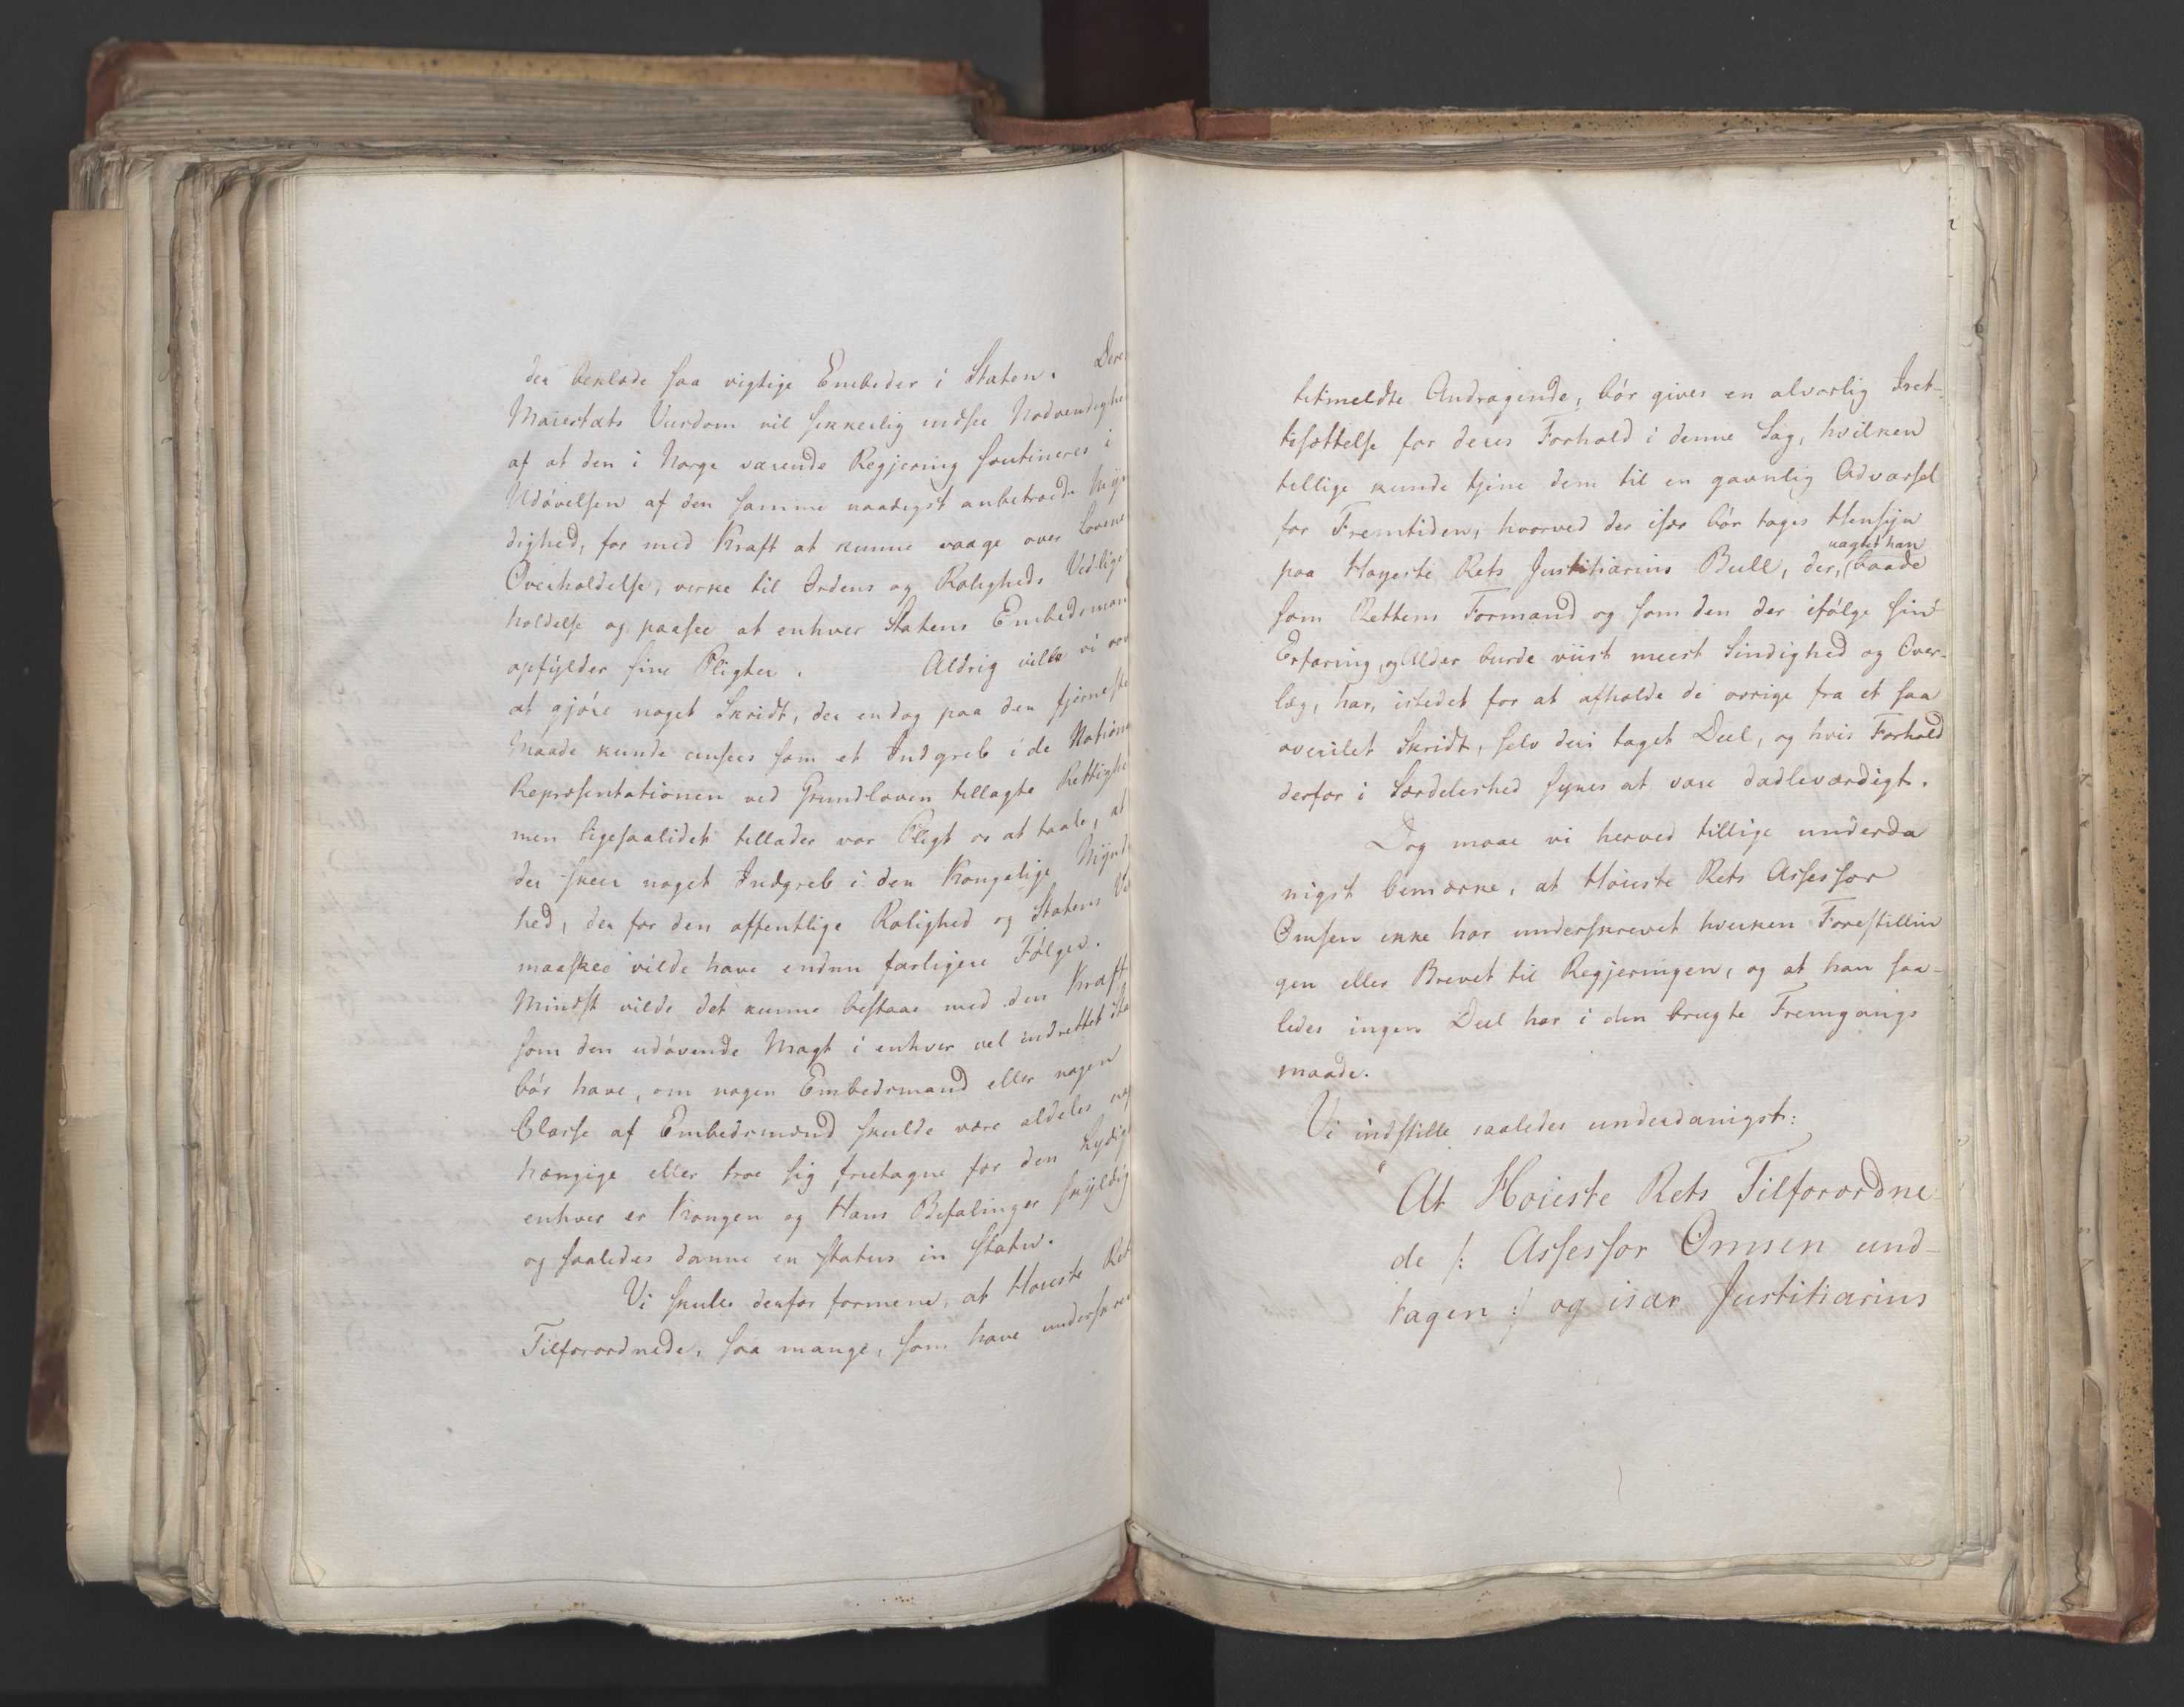 der beklæde saa vigtige Embeder i Staten. Dere
Maiestæts Viisdom vil sikkerlig indsee Nødvendighe
af at den i Norge værende Regjering soutineres i
Udøvelsen af den samme naadigst anbetroede Myn
dighed, for med Kraft at kunne vaage over Lovene
Overholdelse, virke til Ordens og Roligheds Vedlige
holdelse og paasee at enhver Statens Embedsman
opfylder sine Pligter. Aldrig ville vi vov
at gjøre noget Skridt, der endog paa den fjerneste
Maade kunde ansees som et Indgreb i de Nation
Repræsentationen ved Grundloven tillagte Rettighe
men ligesaalidet tillader vor Pligt os at taale, at
der skeer noget Indgreb i den Kongelige Mynd
hed, der for den offentlige Rolighed og Statens Ve
maaskee vilde have endnu farligere Følger.
Mindst vilde det kunne bestaae med den Kraft
som den udøvende Magt i enhver vel indrettet Sta
bør have, om nogen Embedsmand eller nogen
Classe af Embedsmænd skulde være aldeles uaf
hængige eller troe sig fritagne for den Lydigh
enhver er Kongen og Hans Befalinger skyldig
og saaledes danne en status in statu.
Vi skulle derfor formene, at Høieste Ret
Tilforordnede, saa mange, som have underskrev
bemeldte Andragende, bør gives en alvorlig Iret-
tesættelse for deres Forhold i denne Sag, hvilken
tillige kunde tjene dem til en gavnlig Advarsel
for Fremtiden, hvorved der især bør tages Hensyn
paa Høyeste Rets Justitiarius Bull, der, (uagtet han baade
som Rettens Formand og som den der ifølge sin
Erfaring, og Alder burde viist meest Sindighed og Over-
læg, har, istedet for at afholde de øvrige fra et saa
overilet Skridt, selv deri taget Deel, og hvis Forhold
derfor i Særdeleshed synes at være dadleværdigt.
Dog maae vi herved tillige underda
nigst bemærke, at Høieste Rets Assessor
Omsen ikke har underskrevet hverken Forestillin
gen eller Brevet til Regjeringen, og at han saa-
ledes ingen Deel har i den brugte Fremgangs
maade.
Vi indstille saaledes underdanigst:
"At Høieste Rets Tilforordne
de /: Assessor Omsen und-
tagen :/ og især Justitiarius